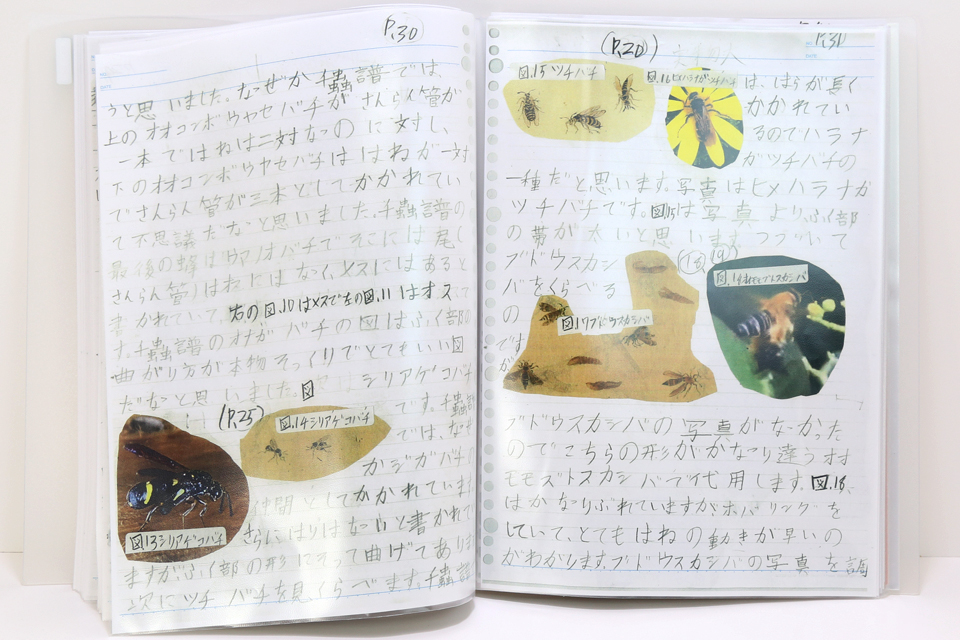 P.30
うと思いました。なぜか千蟲譜では、
上のオオコンボウヤセバチが さんらん管が
一本ではねは二対なのに対し、
下のオオコンボウヤセバチははねが一対
でさんらん管が三本としてかかれてい
て不思議だなと思いました。千蟲譜の
最後の蜂はウマノオバチでそこには尾(
さんらん管)はねにはなく、メスにはあると
書かれていて、右の図.10はメスで左の図.11はオス
す。千蟲譜のオナガバチの図はふく部の
曲がり方が本物そっくりでとてもいい図
だなと思いました。図 シリアゲコバチ
(P.25)
図.14シリアゲコバチ
です。千蟲譜
では、なぜ
かジガバチの
仲間としてかかれています
さらにはりはないと書かれて
図13シリアゲコバチ
ますがふく部の形にそって曲げてあります
次にツチバチを見くらべます。千蟲譜
P.31
(P.20)
図.15ツチバチ
図.16ヒメハラナガツチバチ
は、はらが長く
かかれてい
るのでハラナ
ガツチバチの
一種だと思います。写真はヒメハラナガ
ツチバチです。図15は写真よりふく部
の帯が太いと思います。つづいて
ブドウスカシ
(P.18,19)
バをくらべる
の
です
が
図17ブドウスカシバ
ブドウスカシバの写真がなかった
のでこちらの形がかなり違うオオ
モモブトスカシバで代用します。図.18、
はかなりぶれていますがホバリングを
していて、とてもはねの動きが早いの
がわかります。ブドウスカシバの写真を調